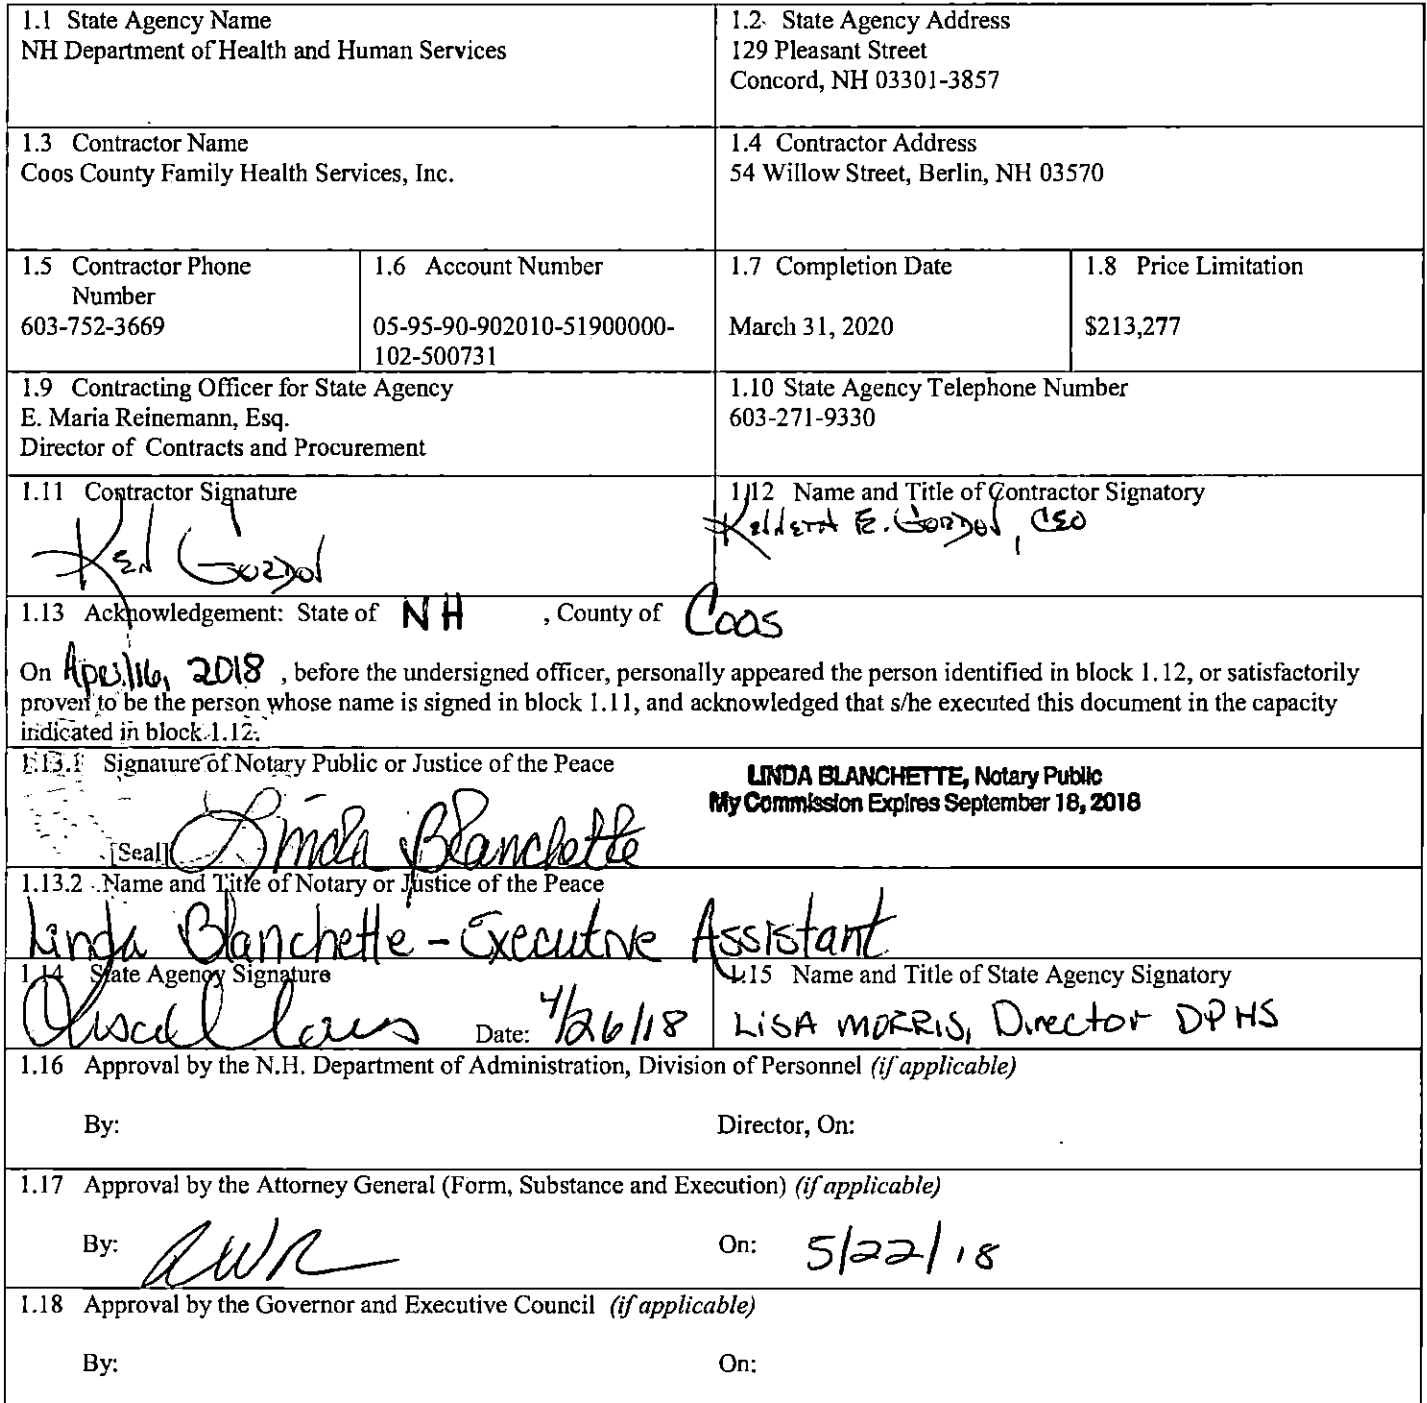 1.1 State Agency Name
NH Department of Health and Human Services
1.2 State Agency Address
129 Pleasant Street
Concord, NH 03301-3857
1.3 Contractor Name
Coos County Family Health Services, Inc.
1.4 Contractor Address
54 Willow Street, Berlin, NH 03570
1.5 Contractor Phone
Number
603-752-3669
1.6 Account Number
05-95-90-902010-51900000-
102-500731
1.7 Completion Date
March 31, 2020
1.8 Price Limitation
$213,277
1.9 Contracting Officer for State Agency
E. Maria Reinemann, Esq.
Director of Contracts and Procurement
1.10 State Agency Telephone Number
603-271-9330
1.11 Contractor Signature
Ken Gordon
1.12 Name and Title of Contractor Signatory
Kenneth E. Gordon, CEO
1.13 Acknowledgement: State of NH , County of Coos
On April 16, 2018 , before the undersigned officer, personally appeared the person identified in block 1.12, or satisfactorily
proven to be the person whose name is signed in block 1.11, and acknowledged that s/he executed this document in the capacity
indicated in block 1.12.
1.13.1 Signature of Notary Public or Justice of the Peace
LINDA BLANCHETTE, Notary Public
My Commission Expires September 18, 2018
[Seal] Linda Blanchette
1.13.2 Name and Title of Notary or Justice of the Peace
Linda Blanchette - Executive Assistant
1.14 State Agency Signature
Date: 4/26/18
1.15 Name and Title of State Agency Signatory
LISA MORRIS, Director DPHS
1.16 Approval by the N.H. Department of Administration, Division of Personnel (if applicable)
By:
Director, On:
1.17 Approval by the Attorney General (Form, Substance and Execution) (if applicable)
By:
On: 5/22/18
1.18 Approval by the Governor and Executive Council (if applicable)
By:
On: